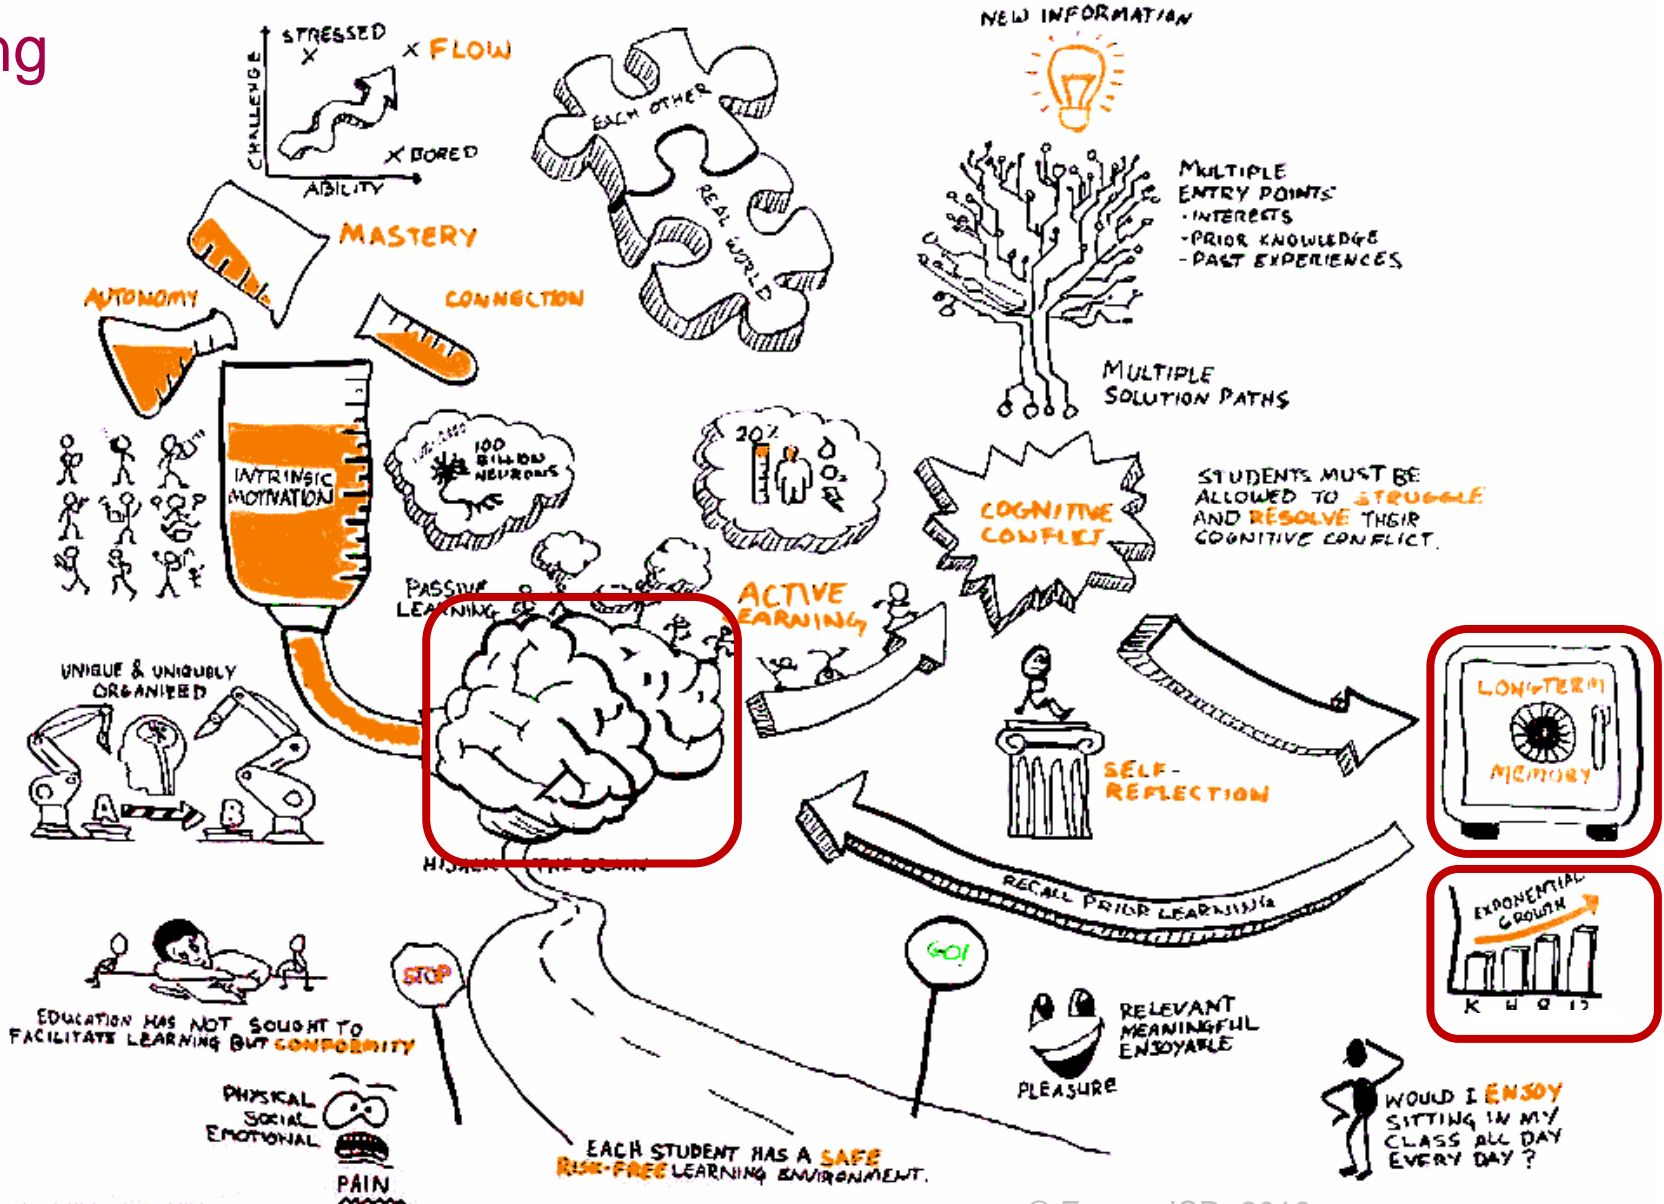 ng
STRESSED
FLOW
CHALLENGE
BORED
ABILITY
MASTERY
AUTONOMY
CONNECTION
EACH OTHER
REAL WORLD
NEW INFORMATION
MULTIPLE
ENTRY POINTS
- INTERESTS
- PRIOR KNOWLEDGE
- PAST EXPERIENCES
MULTIPLE
SOLUTION PATHS
INTRINSIC
MOTIVATION
100
BILLION
NEURONS
20%
O2
COGNITIVE
CONFLICT
STUDENTS MUST BE
ALLOWED TO STRUGGLE
AND RESOLVE THEIR
COGNITIVE CONFLICT.
PASSIVE
LEARNING
ACTIVE
LEARNING
UNIQUE & UNIQUELY
ORGANIZED
A B
SELF-
REFLECTION
LONG-TERM
MEMORY
RECALL PRIOR LEARNING
EXPONENTIAL
GROWTH
K 4 8 12
THE BRAIN
STOP
GO!
EDUCATION HAS NOT SOUGHT TO
FACILITATE LEARNING BUT CONFORMITY
PHYSICAL
SOCIAL
EMOTIONAL
PAIN
RELEVANT
MEANINGFUL
ENJOYABLE
PLEASURE
EACH STUDENT HAS A SAFE
RISK-FREE LEARNING ENVIRONMENT.
WOULD I ENJOY
SITTING IN MY
CLASS ALL DAY
EVERY DAY?